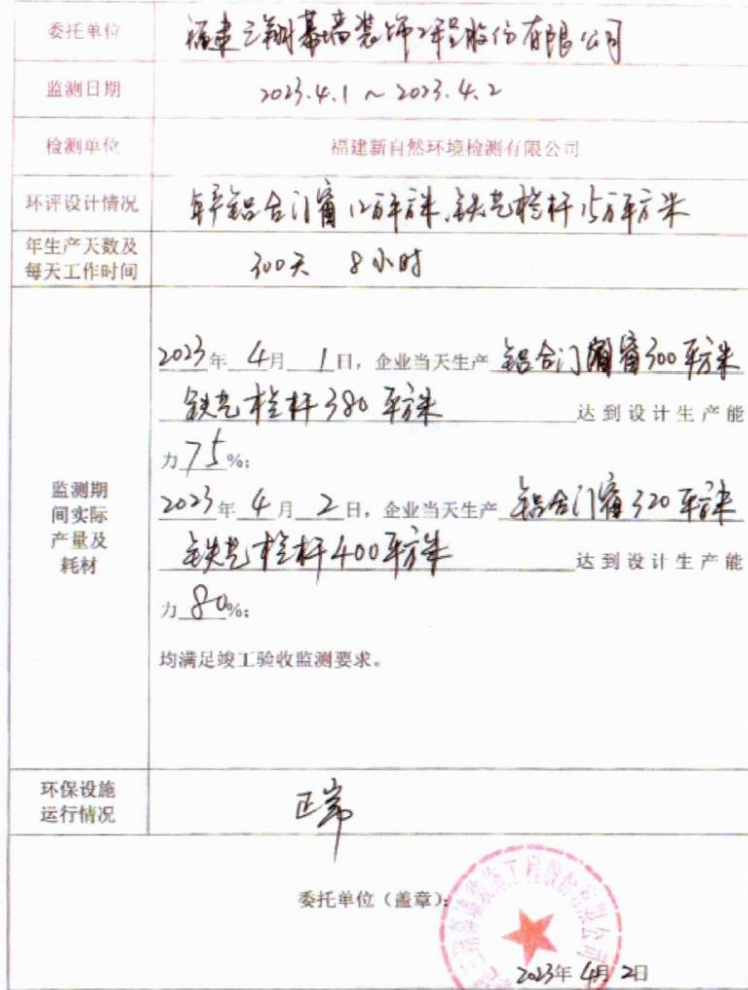 委托单位 福建三翔幕墙装饰工程股份有限公司
监测日期 2023.4.1 ~ 2023.4.2
检测单位 福建新自然环境检测有限公司
环评设计情况 年产铝合门窗12万平方米,铁艺栏杆15万平方米
年生产天数及
每天工作时间
300天 8小时
2023年 4月 1日，企业当天生产 铝合门窗300平方米
铁艺栏杆380平方米 达到设计生产能
力75%；
监测期
间实际
产量及
耗材
2023年 4月 2日，企业当天生产 铝合门窗320平方米
铁艺栏杆400平方米 达到设计生产能
力80%；
均满足竣工验收监测要求。
环保设施
运行情况
正常
委托单位（盖章）：
2023年 4月 2日